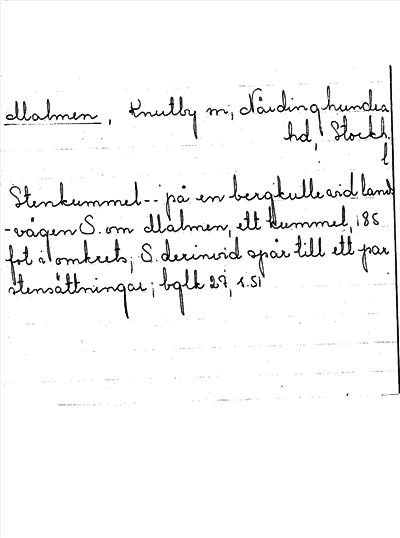 Malmen, Knutby sn, Närdinghundra
hd, Stockh.
l
Stenkummel -- på en bergkulle vid lands
-vägen S. om Malmen, ett kummel, 185
fot i omkrets; S. derinvid spår till ett par
stensättningar; bglk 27, s.51